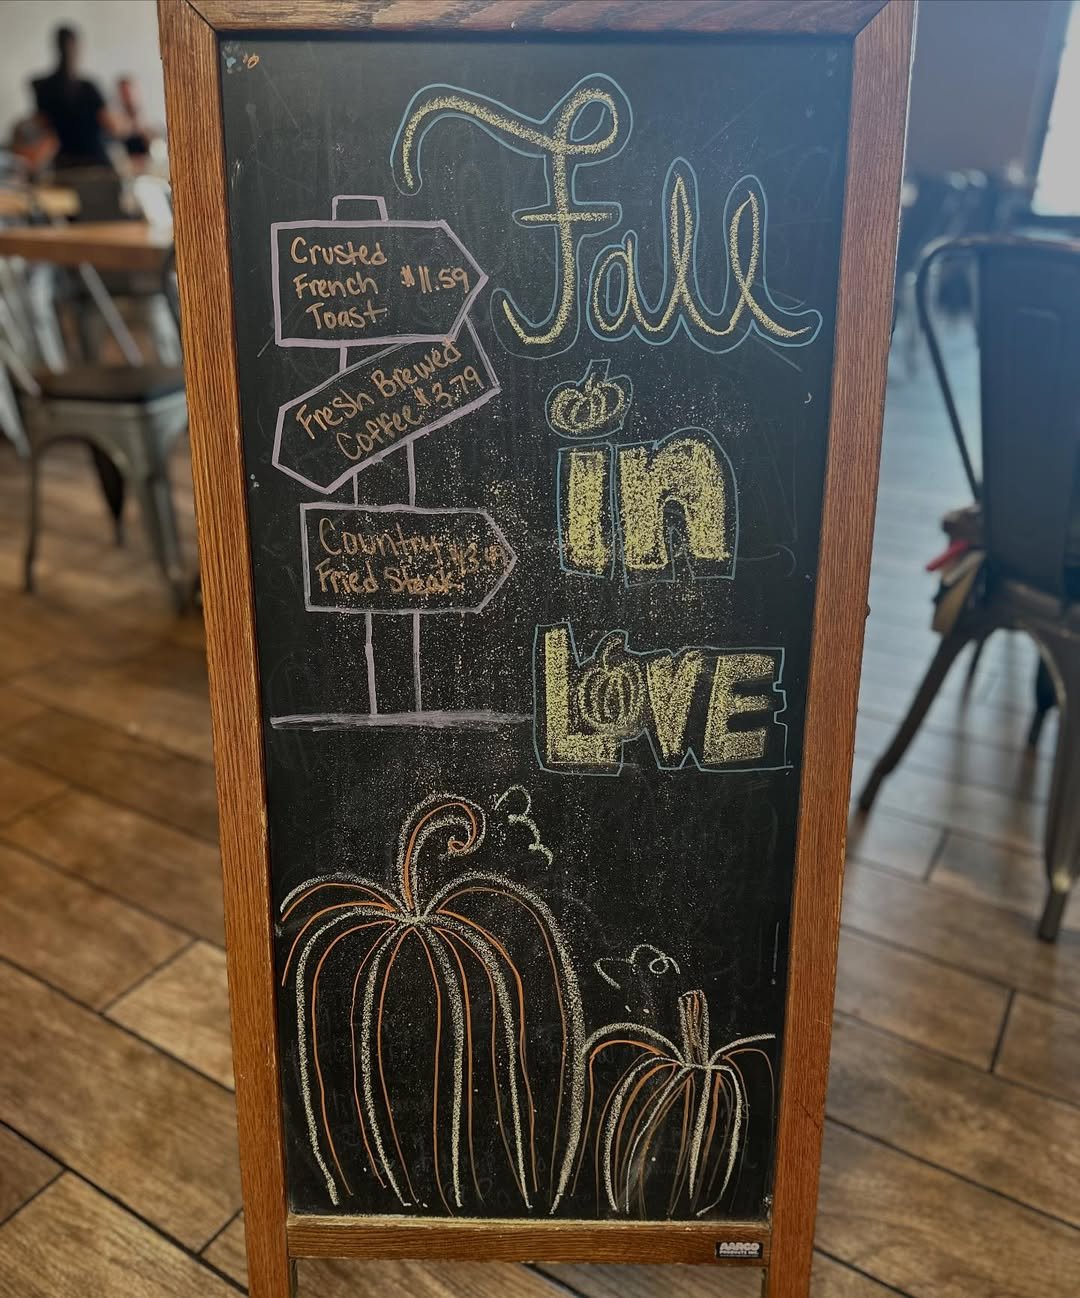 Fall
in
LOVE
Crusted
French $11.59
Toast
Fresh Brewed
Coffee $3.79
Country
Fried Steak
AARCO
PRODUCTS INC.